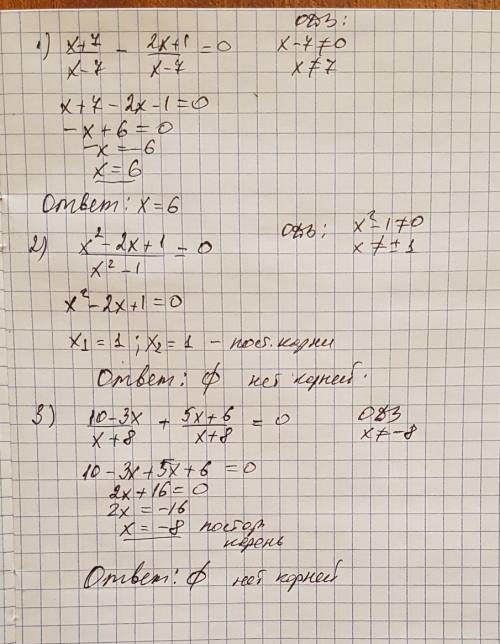 ОДЗ:
1) x+7/x-7 - 2x+1/x-7 = 0
x-7≠0
x≠7
x+7-2x-1=0
-x+6=0
-x=-6
x=6
Ответ: x=6
2) x²-2x+1/x²-1 = 0
ОДЗ: x²-1≠0
x≠±1
x²-2x+1=0
x₁=1; x₂=1 - пост. корни
Ответ: ∅ нет корней.
3) 10-3x/x+8 + 5x+6/x+8 = 0
ОДЗ
x≠-8
10-3x+5x+6=0
2x+16=0
2x=-16
x=-8 постор.
корень
Ответ: ∅ нет корней